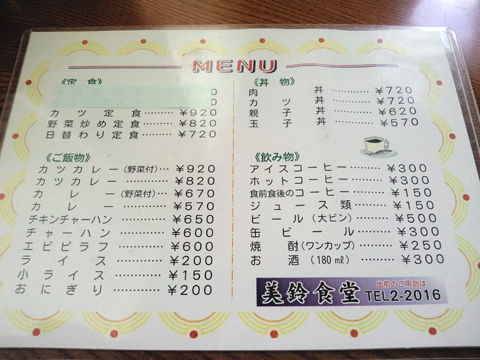 MENU
《定食》
0
0
カツ定食……¥920
野菜炒め定食……¥820
日替わり定食……¥720
《ご飯物》
カツカレー(野菜付)…¥920
カツカレー……¥820
カレー(野菜付)…¥670
カレー……¥570
チキンチャーハン……¥650
チャーハン……¥600
エビピラフ……¥600
ライス……¥200
小ライス……¥150
おにぎり……¥200
《丼物》
肉丼……¥720
カツ丼……¥720
親子丼……¥620
玉子丼……¥570
《飲み物》
アイスコーヒー……¥300
ホットコーヒー……¥300
食前食後のコーヒー……¥150
ジュース類……¥150
ビール(大ビン)……¥500
缶ビール……¥300
焼酎(ワンカップ)……¥250
お酒(180㎖)……¥300
美鈴食堂
出前のご用命は
TEL2-2016